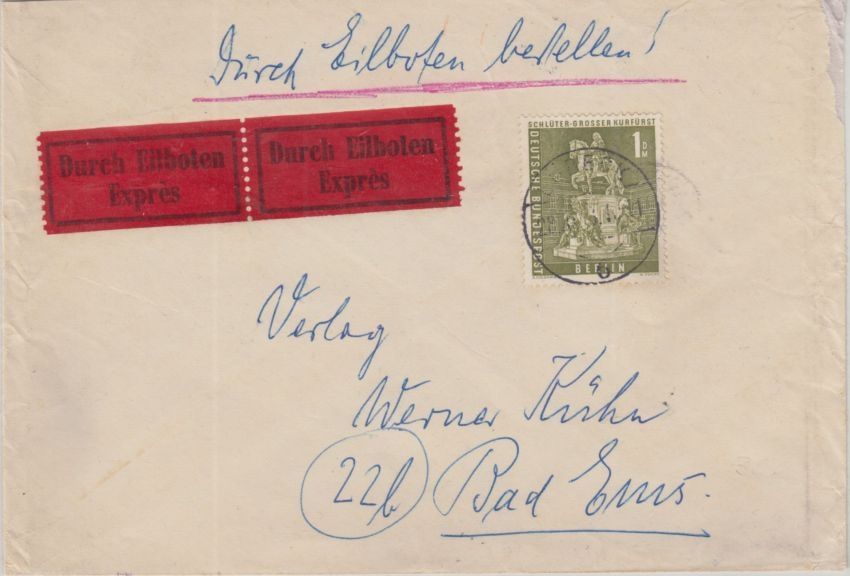 Durch Eilboten bestellen!
Durch Eilboten
Exprès
Durch Eilboten
Exprès
SCHLÜTER-GROSSER KURFÜRST
1 DM
DEUTSCHE BUNDESPOST
BERLIN
Verlag
Werner Kühn
22b Bad Ems.